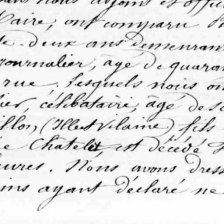 nous avons et offic
Maire, ont comparu
deux ans demeuran
journalier, âgé de quaran
rue, lesquels nous on
ier, célibataire, âgé de s
illon, (Ille et Vilaine) fils
e Chatelet, est décédé
eures. Nous avons dress
oins ayant déclaré ne